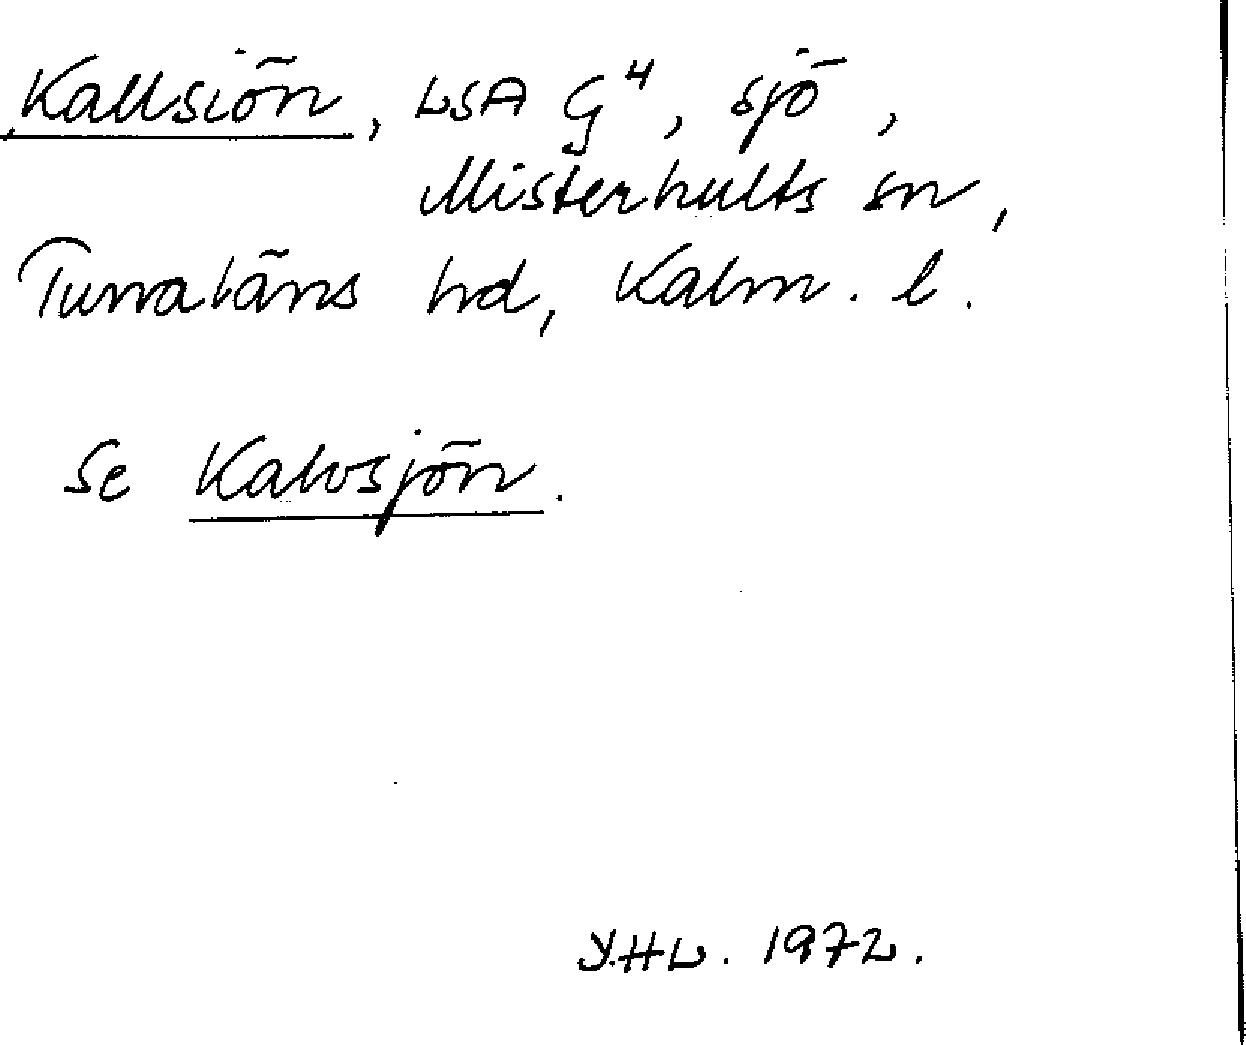 Kallsiön, LSA G⁴, sjö,
Misterhults sn,
Tunaläns hd, Kalm. l.
Se Kalvsjön.
Y.HL. 1972.